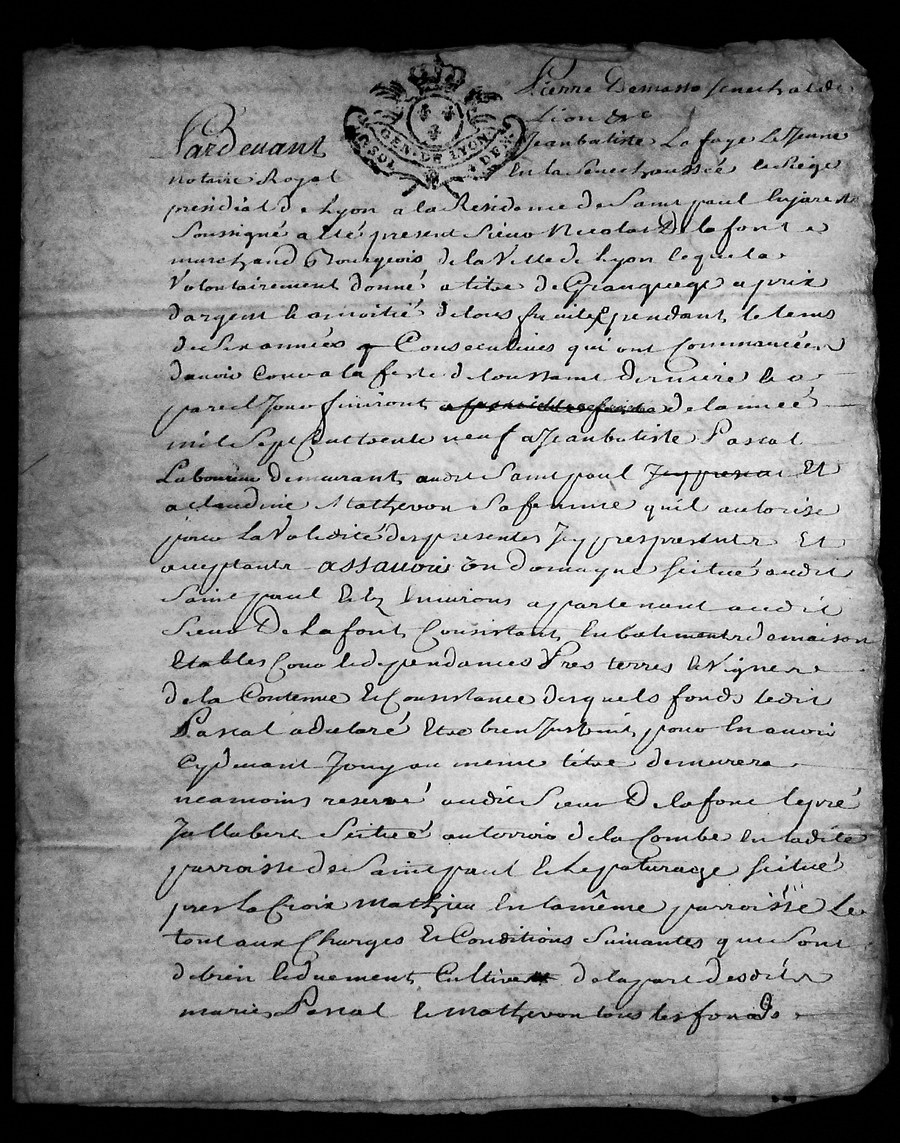 Pierre Demasso Senechal de
Lion &c
GEN. DE LYON
SOL DE
Pardevant Jeanbatiste Lafaye Le Jeune
notaire Royal En la Senechaussée et Siége
présidial de Lyon a la Residence de Saint paul Enjarest
Soussigné a été présent Sieur Nicolas Delafont
marchand Bourgeois de la Ville de Lyon lequel a
Volontairement donné a titre de Grangeage a prix
dargent et a moitié de tous fruits pendant le tems
de Six années Consecutives qui ont Commancées
davoir Cour a la feste de toussaint derniere Et a
pareil Jour finiront de lannée
mil Sept Cent trente neuf a Jeanbatiste Pascal
Laboureur demeurant audit Saint paul Et
a claudine Mathevon Sa femme quil autorise
pour la Validité des presentes Jcy presents Et
acceptants assavoir Un Domayne Scitué audit
Saint paul Et Ez Environs appartenant audit
Sieur Delafont, Consistant En batiments de maison
Etables Cour et dependances Prés terres et Vignes
de la Contenue Et Consistance desquels fonds ledit
Pascal a declaré Etre bien Justruit, pour En avoir
Cydevant Jouy au meme titre demurera
neamoins reservé audit Sieur Delafont le pré
Jallabert Scitué au terroir de la Combe En ladite
parroisse de Saint paul Et le paturage Scitué
pres la Croix Mathieu En la même parroisse Le
tout aux Charges Et Conditions Suivantes que Sont
de bien et duement, Cultiver de la part desdits
mariés Pascal et Mathevon tous les fonds